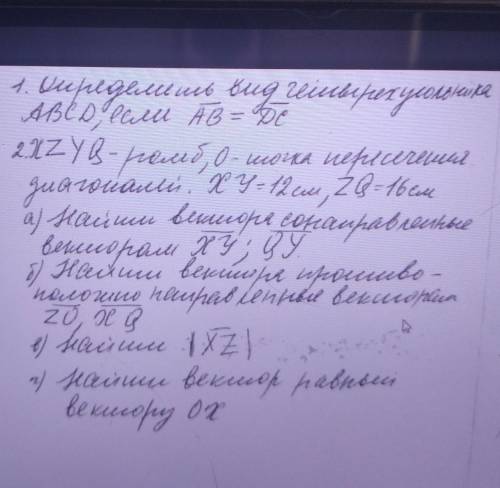 1. Определить вид четырехугольника
ABCD, если AB = DC
2. XZYQ - ромб, O - точка пересечения
диагоналей. XY = 12 см, ZQ = 16 см
а) Найти вектора сонаправленные
векторам XY; QY.
б) Найти вектора противо-
положно направленные векторам
ZO, XQ
в) Найти |XZ|
г) Найти вектор равный
вектору OX